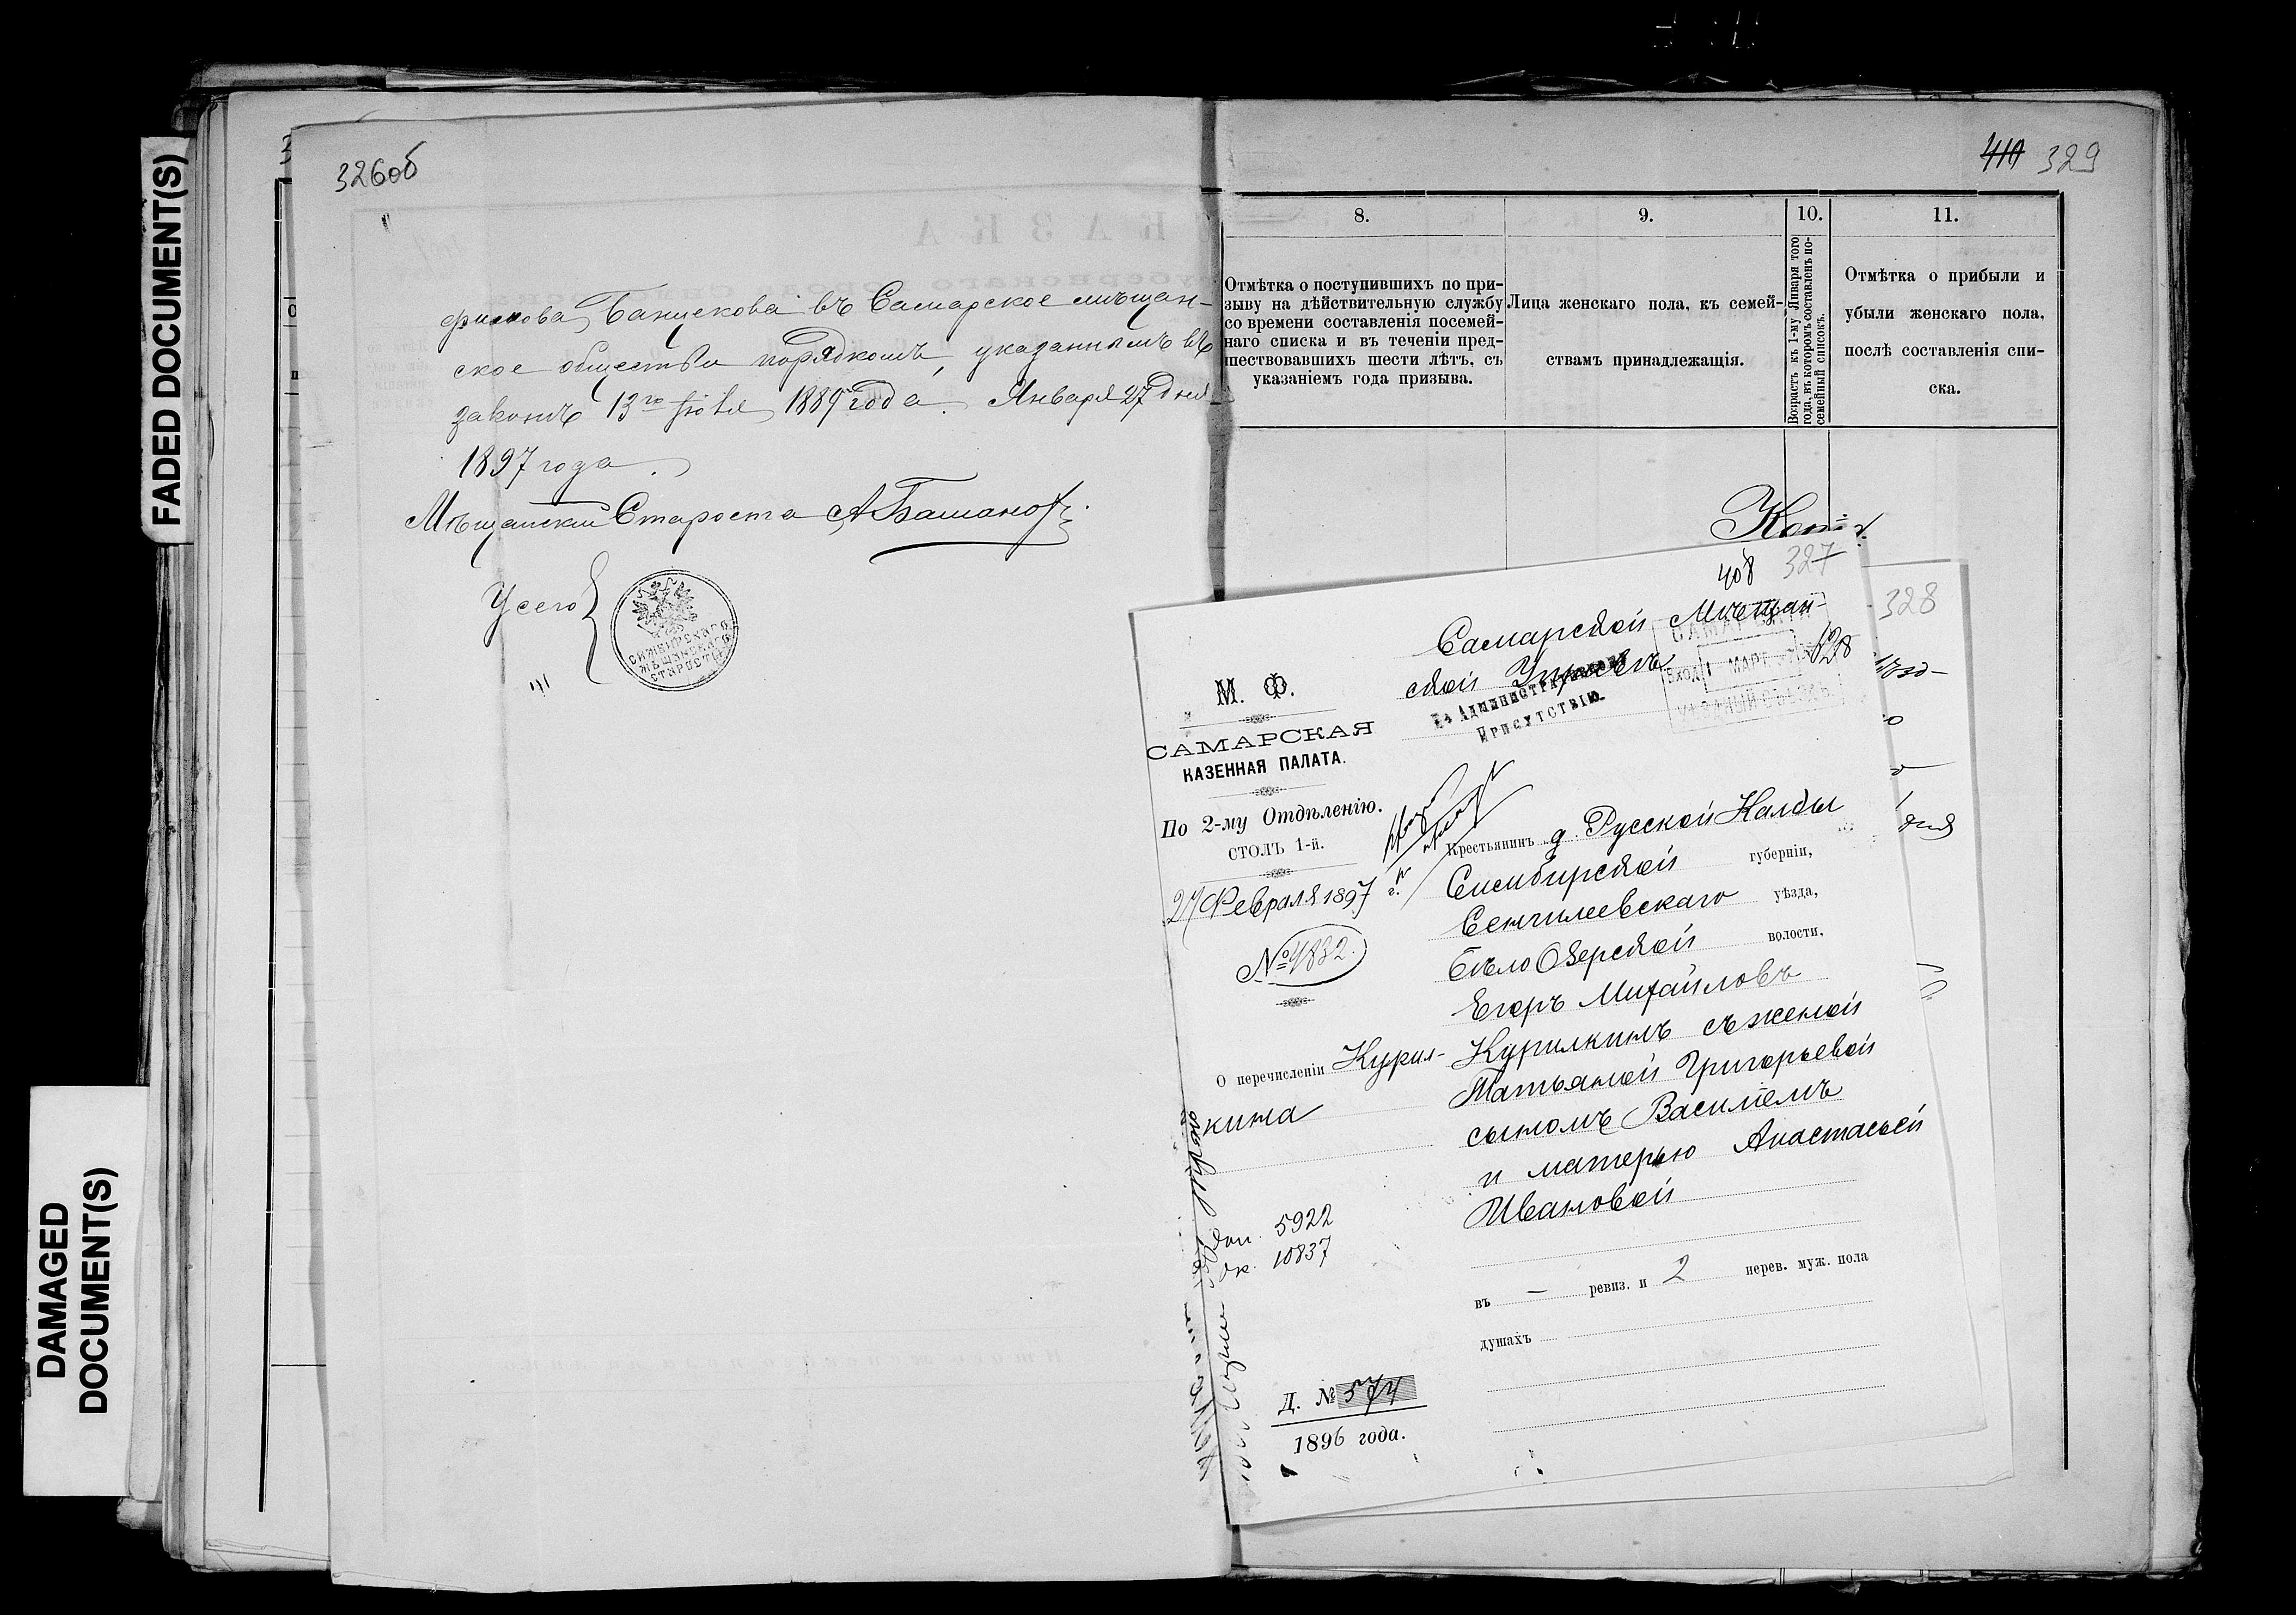 FADED DOCUMENT(S)
DAMAGED
DOCUMENT(S)
326об
въ Самарское мѣщан-
ское общество порядкомъ, указаннымъ въ
законѣ 13го Іюля 1889 года. Января 27 дня
1897 года.
Мѣщанскій Староста
У сего
МѢЩАНСКАГО
СТАРОСТЫ
410 329
8.
Отмѣтка о поступившихъ по при-
зыву на дѣйствительную службу
со времени составленія посемей-
наго списка и въ теченіи пред-
шествовавшихъ шести лѣтъ, съ
указаніемъ года призыва.
9.
Лица женскаго пола, къ семей-
ствамъ принадлежащія.
10.
Возрастъ къ 1-му Января того
года, въ которомъ составленъ по-
семейный списокъ.
11.
Отмѣтка о прибыли и
убыли женскаго пола,
послѣ составленія спи-
ска.
Копія
328
408 327
М. Ф.
САМАРСКАЯ
КАЗЕННАЯ ПАЛАТА.
По 2-му Отдѣленію.
СТОЛЪ 1-й.
27 Февраля 1897 г.
№ 4832.
О перечисленіи Курил-
кина
5922
ок. 10837
Д. № 574
1896 года.
Самарской Мѣщан-
ской Управѣ
По Административному
Присутствію.
ВХОД. 1 МАРТ
Крестьянинъ д. Русской Калды
Симбирской губерніи,
Сенгилеевскаго уѣзда,
Бѣло Озерской волости,
Егоръ Михайловъ
Курилкинъ съ женой
Татьяной Григорьевой
сыномъ Василіемъ
и матерью Анастасьей
Ивановой
въ — ревиз. и 2 перев. муж. пола
душахъ